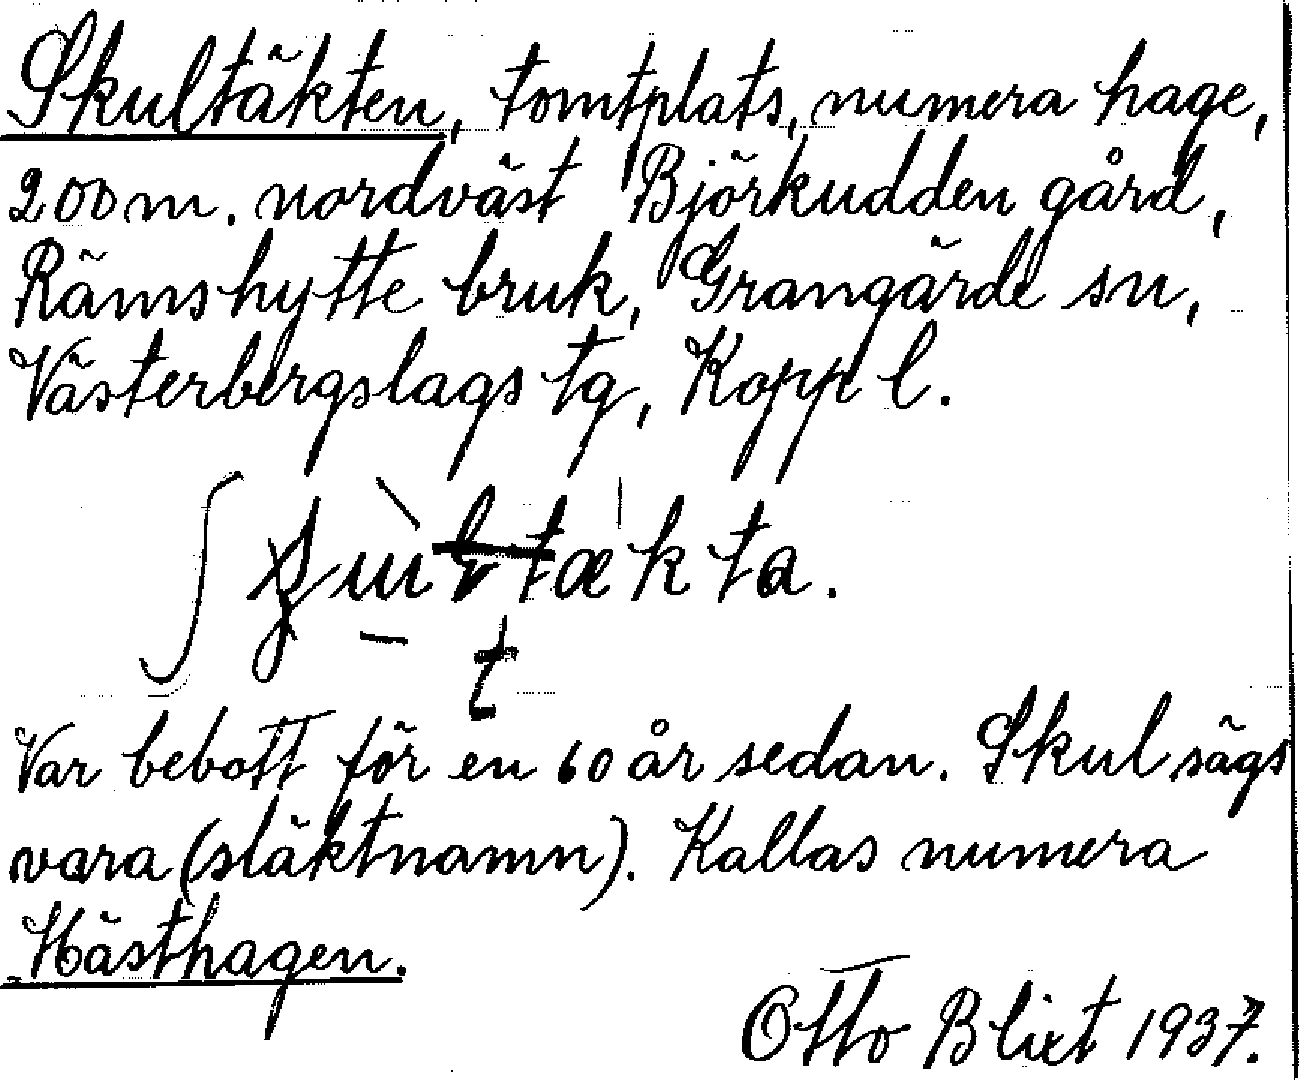 Skultäkten, tomtplats, numera hage,
200 m. nordväst Björkudden gård,
Rämshytte bruk, Grangärde sn,
Västerbergslags tg, Kopp l.
Var bebott för en 60 år sedan. Skul sägs
vara (släktnamn). Kallas numera
Hästhagen.
Otto Blixt 1937.